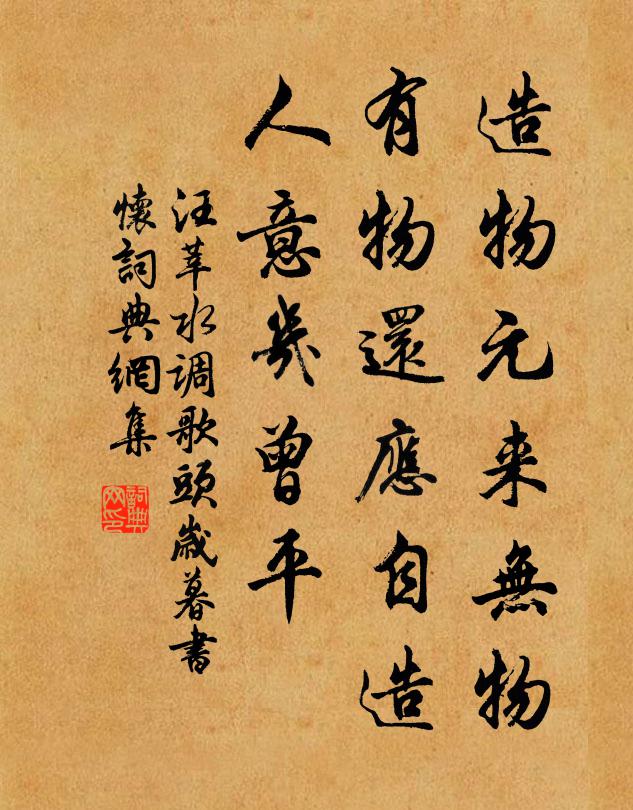 造物元来無物
有物還應自造
人意幾曾平
汪莘水调歌頭歲暮書
懷詞典網集
詞典
网印